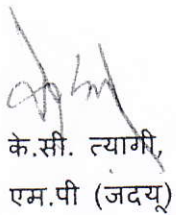 के.सी. त्यागी,
एम.पी (जदयू)